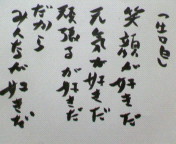 笑顔が好きだ
元気が好きだ
頑張るが好きだ
だから
みんなが好きだ